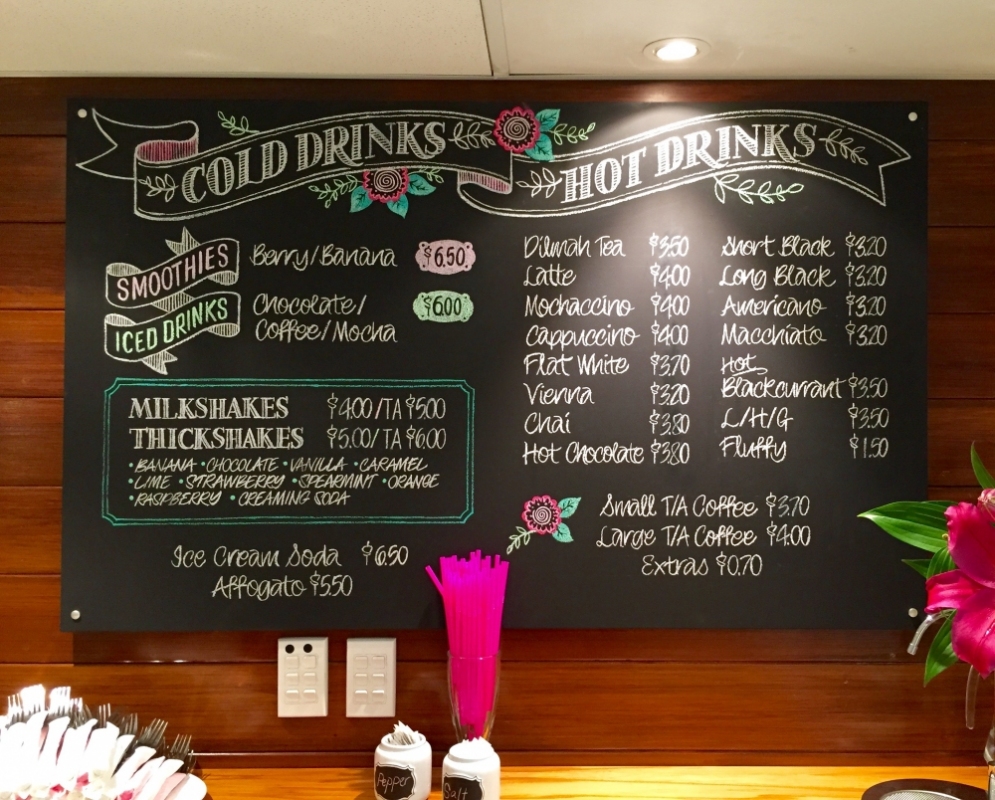 COLD DRINKS
SMOOTHIES
Berry/Banana $6.50
ICED DRINKS
Chocolate/
Coffee/Mocha $6.00
MILKSHAKES $4.00/TA $5.00
THICKSHAKES $5.00/TA $6.00
• BANANA • CHOCOLATE • VANILLA • CARAMEL
• LIME • STRAWBERRY • SPEARMINT • ORANGE
• RASPBERRY • CREAMING SODA
Ice Cream Soda $6.50
Affogato $5.50
HOT DRINKS
Dilmah Tea $3.50
Latte $4.00
Mochaccino $4.00
Cappuccino $4.00
Flat White $3.70
Vienna $3.20
Chai $3.80
Hot Chocolate $3.80
Short Black $3.20
Long Black $3.20
Americano $3.20
Macchiato $3.20
Hot
Blackcurrant $3.50
L/H/G $3.50
Fluffy $1.50
Small T/A Coffee $3.70
Large T/A Coffee $4.00
Extras $0.70
Pepper
Salt